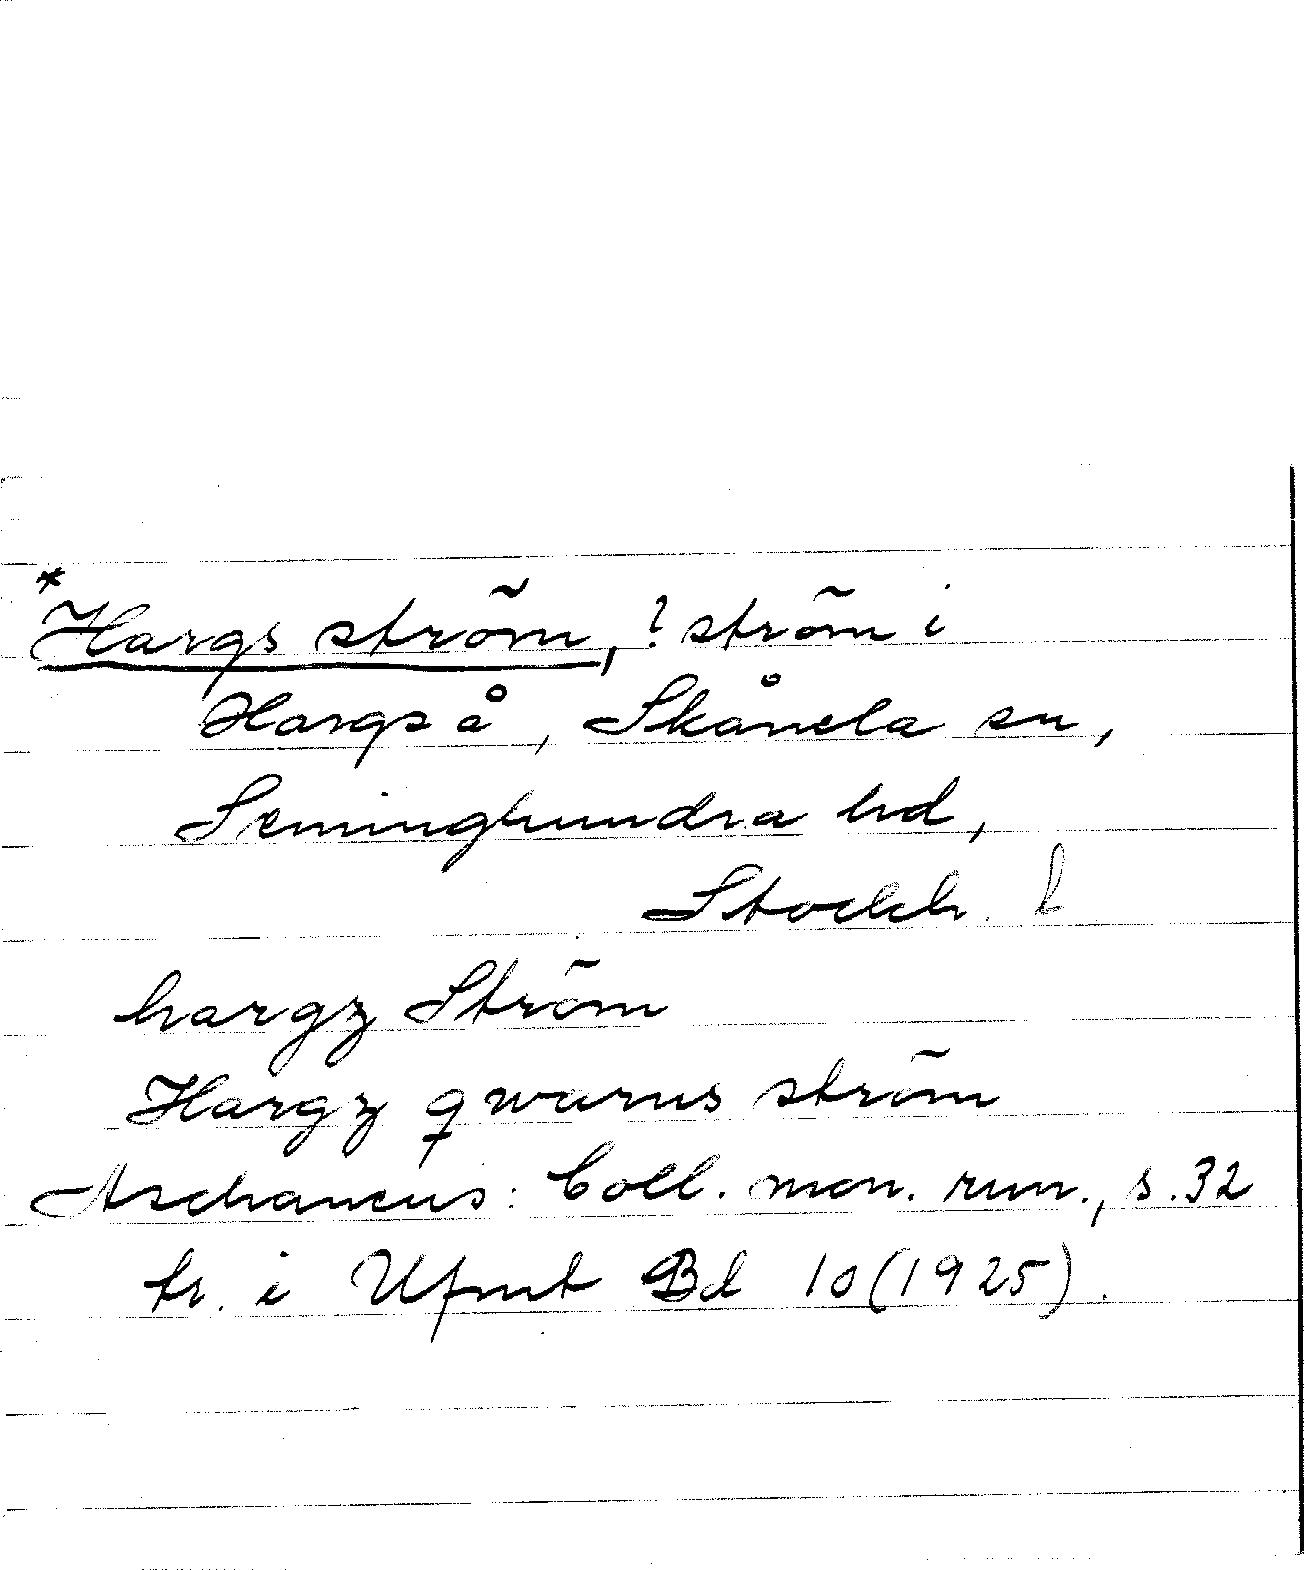 *Hargs ström, ? ström i
Hargså, Skånela sn,
Seminghundra hd,
Stockh. l
hargz Ström
Hargz qwarns ström
Aschaneus: Coll. mon. run., s. 32
tr. i Ufmt Bd 10 (1925).